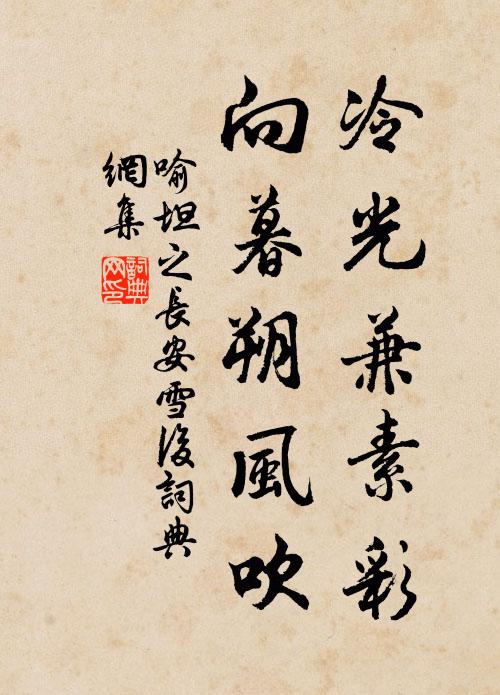 冷光兼素彩
向暮朔風吹
喻坦之長安雪後詞典
網集
詞典
网印